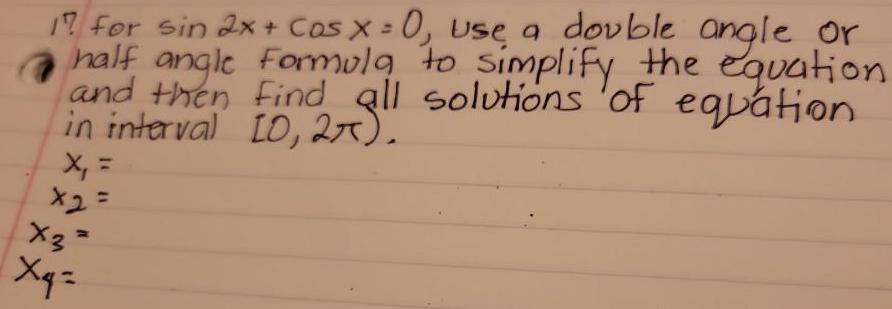 17 for sin 2x + cos x = 0, use a double angle or
half angle formula to simplify the equation
and then find all solutions of equation
in interval [0, 2π).
x₁ =
x₂ =
x₃ =
x₄ =